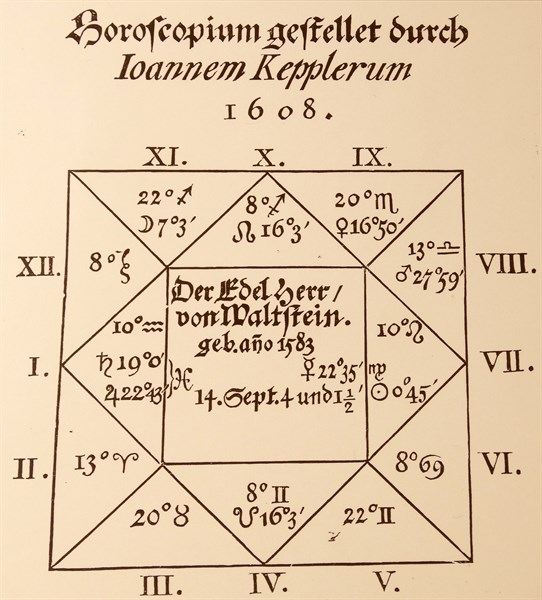 Horoscopium gestellet durch
Ioannem Kepplerum
1608.
XI. X. IX.
22° ♐ 8° ♐ 20° ♏
☽ 7° 3′ ☊ 16° 3′ ♀ 16° 50′
XII. 8° ♑ 13° ♎ VIII.
♂ 27° 59′
Der Edel Herr/
von Waltstein.
geb. año 1583
10° ♒ 10° ♌
I. ♄ 19° 0′ ♀ 22° 35′ ♍ VII.
♃ 22° 43′ } ♓ 14. Sept. 4 und 1½′ ☉ 0° 45′
II. 13° ♈ 8° ♋ VI.
20° ♉ 8° ♊ 22° ♊
☋ 16° 3′
III. IV. V.